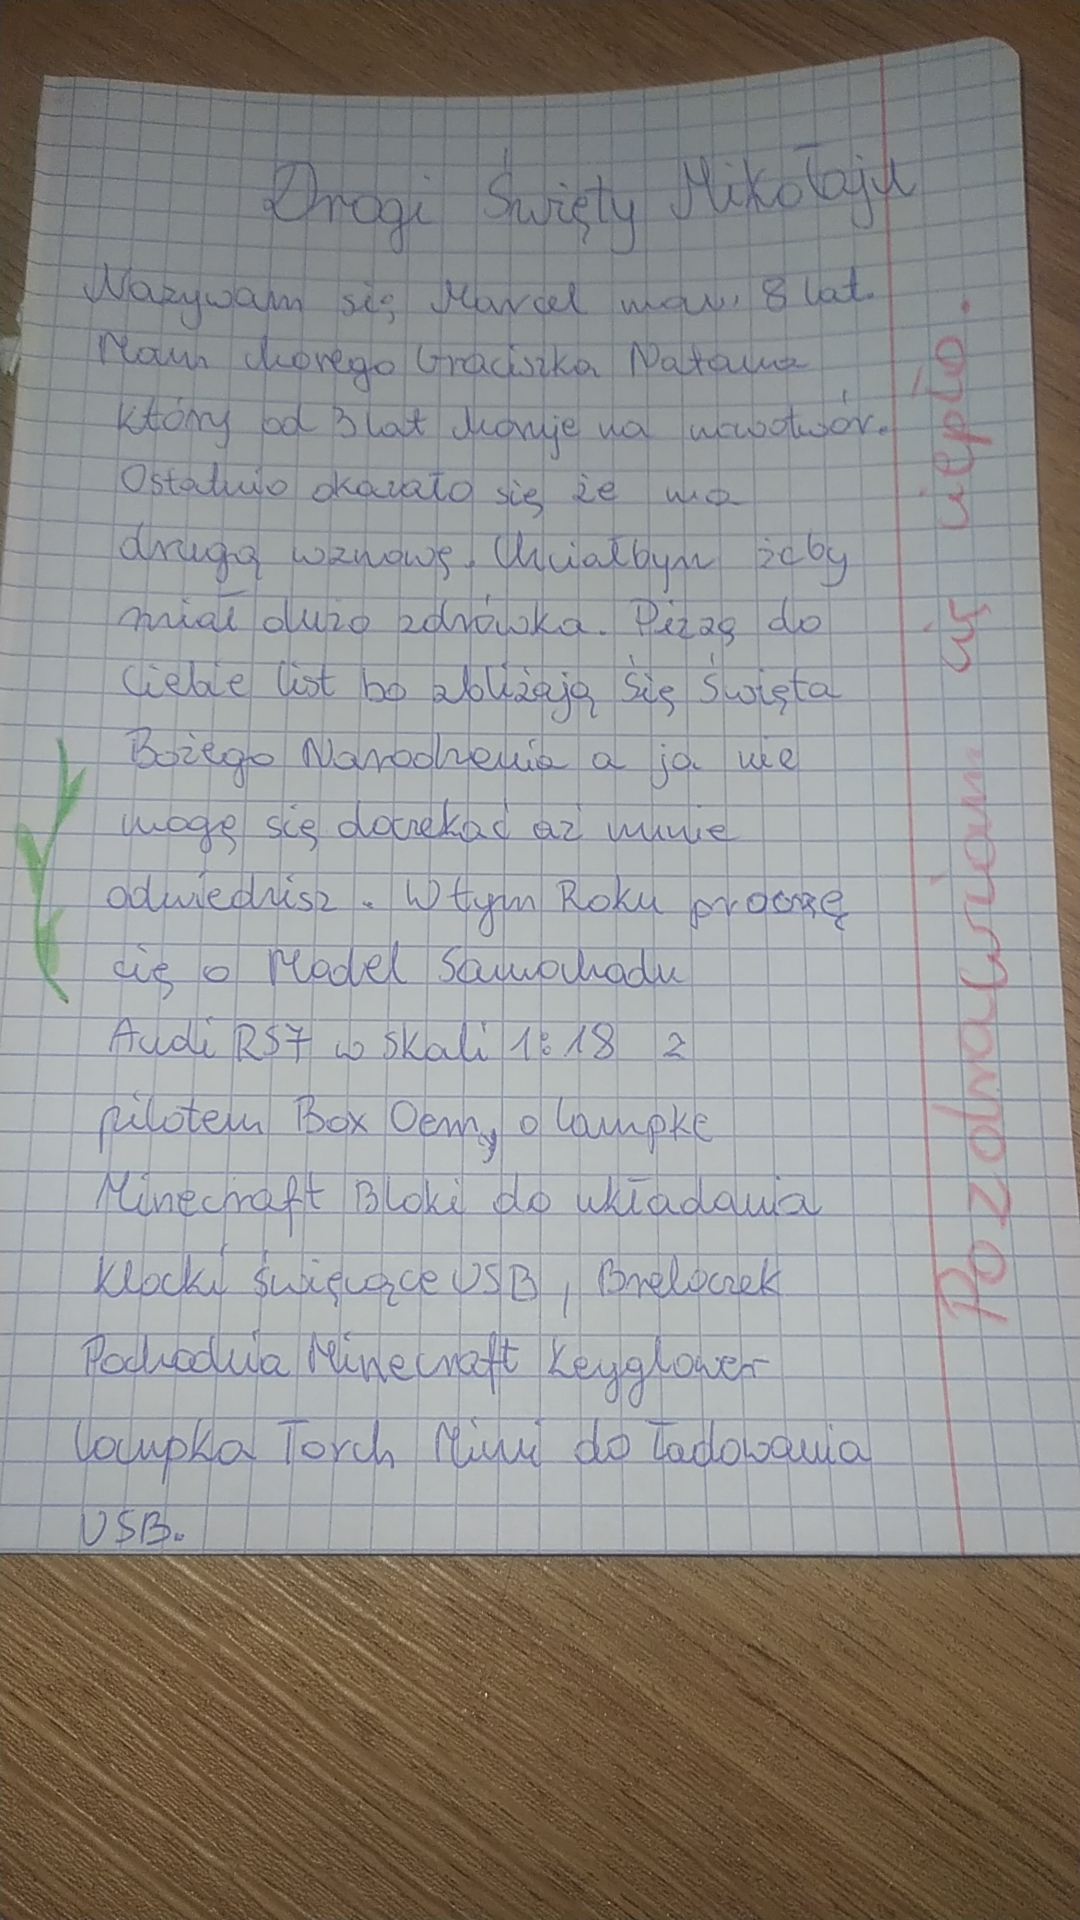 Drogi Święty Mikołaju
Nazywam się Marcel mam 8 lat.
Mam chorego braciszka Natana
który od 3 lat choruje na nowotwór.
Ostatnio okazało się że ma
drugą wznowę. Chciałbym żeby
miał dużo zdrówka. Piszę do
Ciebie list bo zbliżają się Święta
Bożego Narodzenia a ja nie
mogę się doczekać aż mnie
odwiedzisz. W tym Roku prooszę
cię o Model Samochodu
Audi RS7 w skali 1:18 z
pilotem Box Oem, o lampkę
Minecraft Bloki do układania
Klocki święcące USB, Breloczek
Pochodnia Minecraft Keyglower
lampka Torch Mini do ładowania
USB.
Pozdrawiam cię ciepło.